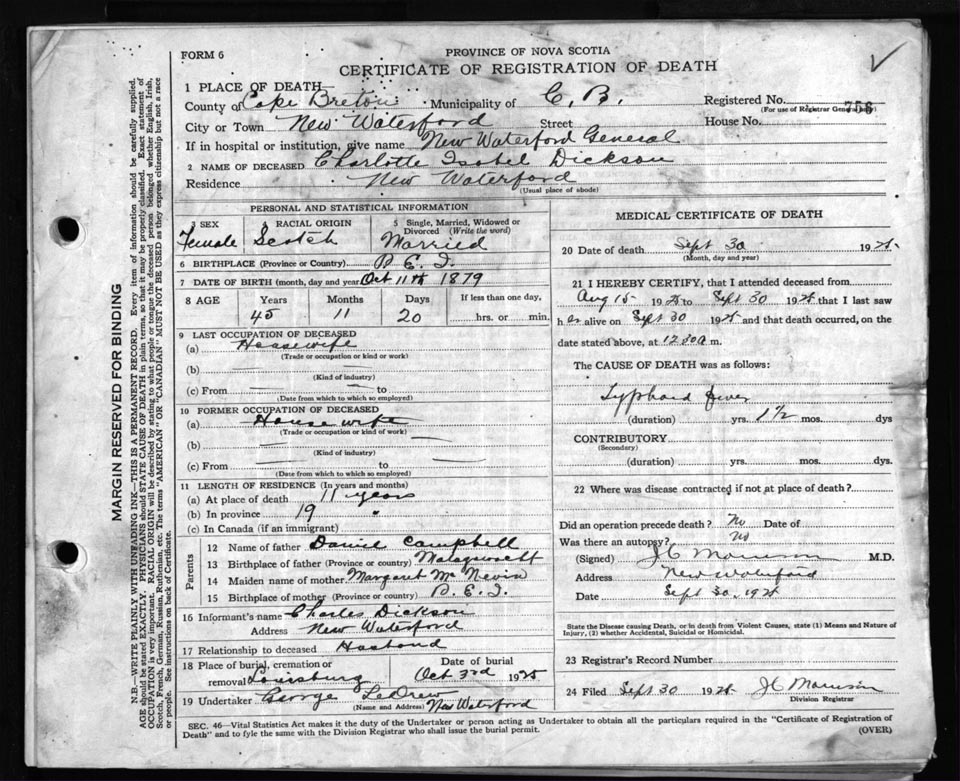 FORM 6
PROVINCE OF NOVA SCOTIA
CERTIFICATE OF REGISTRATION OF DEATH
1 PLACE OF DEATH—
County of Cape Breton Municipality of C. B. Registered No. 756
(For use of Registrar General only)
City or Town New Waterford Street House No.
If in hospital or institution, give name New Waterford General
2 NAME OF DECEASED Charlotte Isobel Dickson
Residence New Waterford
(Usual place of abode)
PERSONAL AND STATISTICAL INFORMATION
3 SEX Female
RACIAL ORIGIN Scotch
5 Single, Married, Widowed or Divorced (Write the word) Married
6 BIRTHPLACE (Province or Country) P. E. I.
7 DATE OF BIRTH (month, day and year) Oct 11th 1879
8 AGE Years Months Days If less than one day,
45 11 20 hrs. or min.
9 LAST OCCUPATION OF DECEASED
(a) Housewife
(Trade or occupation or kind or work)
(b)
(Kind of industry)
(c) From to
(Date from which to which so employed)
10 FORMER OCCUPATION OF DECEASED
(a) House wife
(Trade or occupation or kind of work)
(b)
(Kind of industry)
(c) From to
(Date from which to which so employed)
11 LENGTH OF RESIDENCE (In years and months)
(a) At place of death 11 years
(b) In province 19 "
(c) In Canada (if an immigrant)
Parents
12 Name of father Daniel Campbell
13 Birthplace of father (Province or country)
14 Maiden name of mother Margaret McNevin
15 Birthplace of mother (Province or country) P. E. I.
16 Informant's name Charles Dickson
Address New Waterford
17 Relationship to deceased Husband
18 Place of burial, cremation or removal Louisburg
Date of burial Oct 3rd 1925
19 Undertaker George LeDrew New Waterford
(Name and Address)
MEDICAL CERTIFICATE OF DEATH
20 Date of death Sept 30 1925
(Month, day and year)
21 I HEREBY CERTIFY, that I attended deceased from
Aug 15 1925 to Sept 30 1925 that I last saw
her alive on Sept 30 1925 and that death occurred, on the
date stated above, at 12 30 a m.
The CAUSE OF DEATH was as follows:
Typhoid fever
(duration) yrs. 1½ mos. dys
CONTRIBUTORY
(Secondary)
(duration) yrs. mos. dys.
22 Where was disease contracted if not at place of death?
Did an operation precede death? No Date of
Was there an autopsy? No
(Signed) J C Morrison M.D.
Address New Waterford
Date Sept 30, 1925
State the Disease Causing Death, or in death from Violent Causes, state (1) Means and Nature of
Injury, (2) whether Accidental, Suicidal or Homicidal.
23 Registrar's Record Number
24 Filed Sept 30 1925 J C Morrison
Division Registrar
SEC. 46—Vital Statistics Act makes it the duty of the Undertaker or person acting as Undertaker to obtain all the particulars required in the "Certificate of Registration of
Death" and to fyle the same with the Division Registrar who shall issue the burial permit. (OVER)
MARGIN RESERVED FOR BINDING
N.B.—WRITE PLAINLY WITH UNFADING INK—THIS IS A PERMANENT RECORD. Every item of information should be carefully supplied.
AGE should be stated EXACTLY. PHYSICIANS should STATE CAUSE OF DEATH in plain terms, so that it may be properly classified. Exact statement of
OCCUPATION is very important. RACIAL ORIGIN will be described by stating to what people or tongue the deceased person belonged whether English, Irish,
Scotch, French, German, Russian, Ruthenian, etc. The terms "AMERICAN" OR "CANADIAN" MUST NOT BE USED as they express citizenship but not a race
or people. See instructions on back of Certificate.